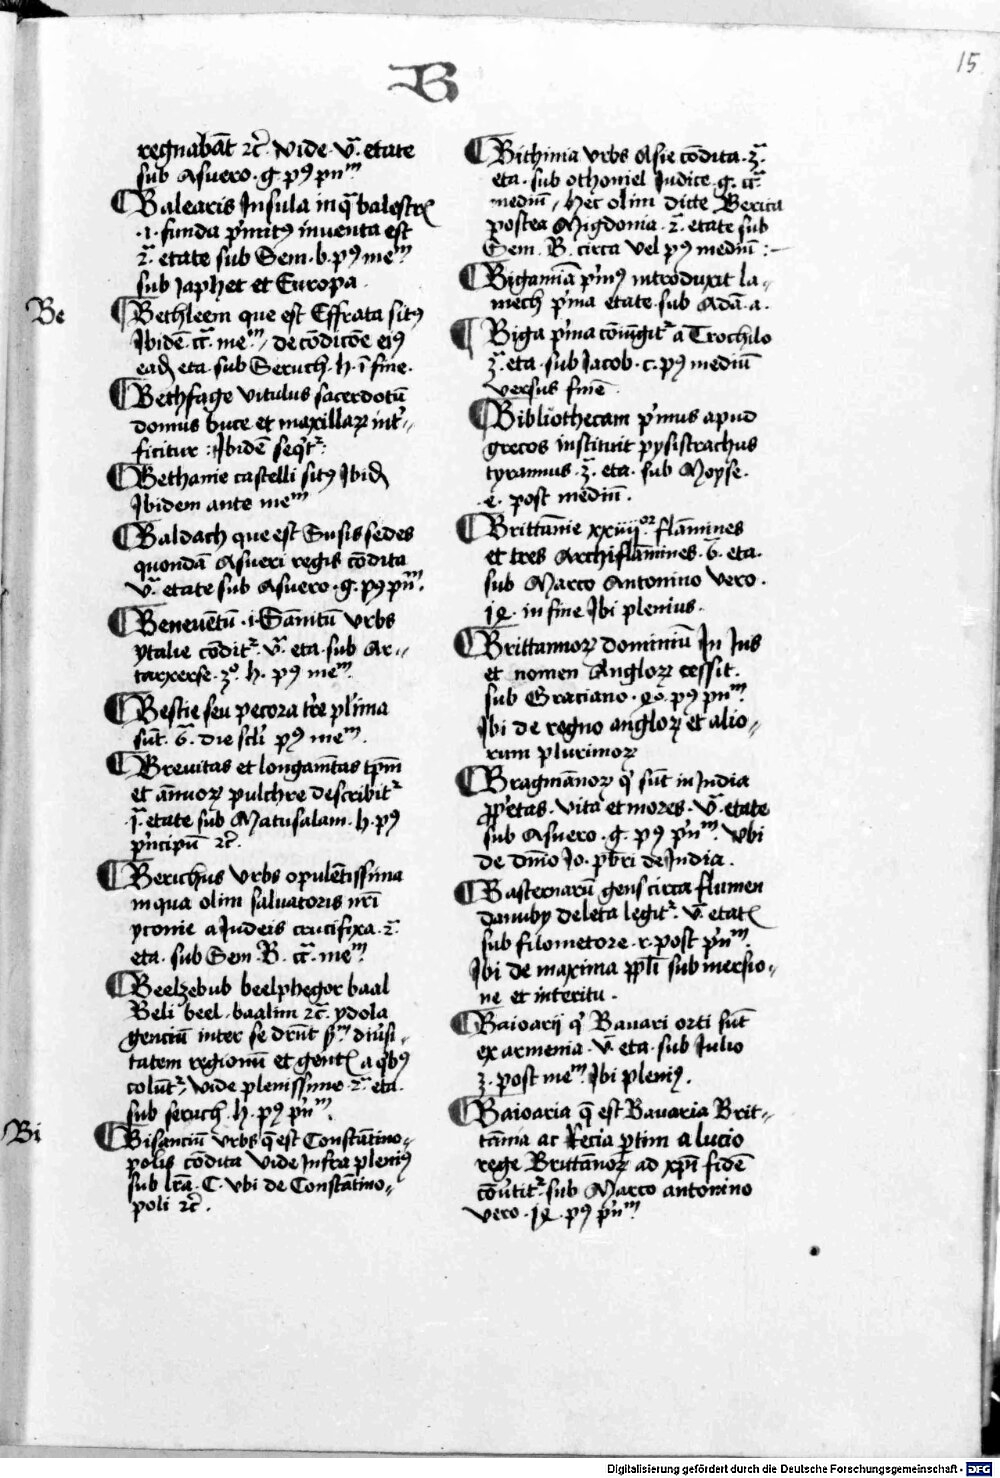 15
B
regnabāt ⁊c̄ vide v̄ etate
sub Asuero · g · p⁹ pn̄ᵐ
Balearis Insula in q̄ balestꝝ
·i· funda p'mit⁹ inventa est
2ͣ etate sub Sem · b · p⁹ meᵐ
sub Japhet et Europa ·
Be
Bethleem que est Effrata sit⁹
Ibidē · cͣ meᵐ, de cōdicōe ei⁹
eadē eta · sub Seruch · h · ī fine ·
Bethfage vitulus sacerdotū
domus buce et maxillaꝝ int'
ficitur : Ibidē seq't2
Bethanie castelli sit⁹ Ibidē
Ibidem ante meᵐ
Baldach que est Susis sedes
quondā Asueri regis cōdita
vͣ etate sub Asuero · g · p⁹ pn̄ᵐ
Benevētū · i · Sānitū vrbs
ytalie cōdit2 · vͣ eta · sub Ar
tarxerse · 3º · h · p⁹ meᵐ
Bestie seu pecora tr̄e pl'ima
sūt · 6ͣ · die scl'i p⁹ meᵐ ·
Brevitas et longam̄tas tpm̄
et ānuoꝝ pulchre describit2
·1ͣ etate sub Matusalam · h · p⁹
p'ncipiū ⁊c̄ ·
Berithus vrbs opulētissima
in qua olim saluatoris nr̄i
yconie a Judeis crucifixa · 2ͣ
eta · sub Sem · B · cͣ · meᵐ
Beelzebub beelphegor baal
Beli beel · baalim ⁊c̄ · ydola
genciū inter se dr̄nt sᵐ diu'si
tatem regionū et gentꝭ a qb⁹
colūt2, vide plenissime · 2ͣ eta ·
sub seruch · h · p⁹ pn̄ᵐ
Bi
Bisanciū vrbs q̄ est Constātino
polis cōdita vide Infra pleni⁹
sub lr̄a · C · vbi de Constātino
poli ⁊c̄ ·
Bithinia vrbs Asie cōdita · 3ͣ
eta · sub othoniel Judice · g · cͣ
mediū, hec olim dicte Bericia
postea Migdonia · 2ͣ etate sub
Sem · B · circa vel p⁹ mediū :
Bigamiā p'm⁹ introduxit la
mech p'ma etate · sub Adā · a ·
Biga p'ma cōiūgit2 a Trochilo
3ͣ · eta · sub Jacob · c · p⁹ mediū
versus finē
Bibliothecam p'mus apud
grecos instituit pysistrachus
tyrannus · 3ͣ · eta · sub Moyse ·
·e· post mediū ·
Brittānie xxviijᵒʳ flāmines
et tres Archiflāmines · 6̄ · eta ·
sub Marco Antonino vero ·
in fine Ibi plenius ·
Brittannoꝝ dominiū In Ius
et nomen Angloꝝ cessit ·
sub Graciano · p⁹ pn̄ᵐ
Ibi de regno angloꝝ et alio
rum plurimoꝝ
Bragmānoꝝ q' sūt in India
pp'etas · vita et mores · vͣ · etate
sub Asuero · g · p⁹ p'nᵐ vbi
de dn̄o Jo · pb̄ri de India ·
Basternarū gens circa flumen
danuby deleta legit2 · v̄ · etatꝭ
sub filometore · r · post p'nᵐ
Ibi de maxima ppl'i submersio
ne et interitu ·
Baioarij q' Bauari orti sūt
ex armenia · v̄ · eta · sub Julio
3 · post meᵐ Ibi pleni⁹ ·
Baioaria q̄ est Bauaria Brit
tānia ac Recia p̄tim a lucio
rege Brittānoꝝ ad xp̄i fidē
cōu'tit2 · sub Marco antonino
vero · p⁹ p'nᵐ
Digitalisierung gefördert durch die Deutsche Forschungsgemeinschaft - DFG